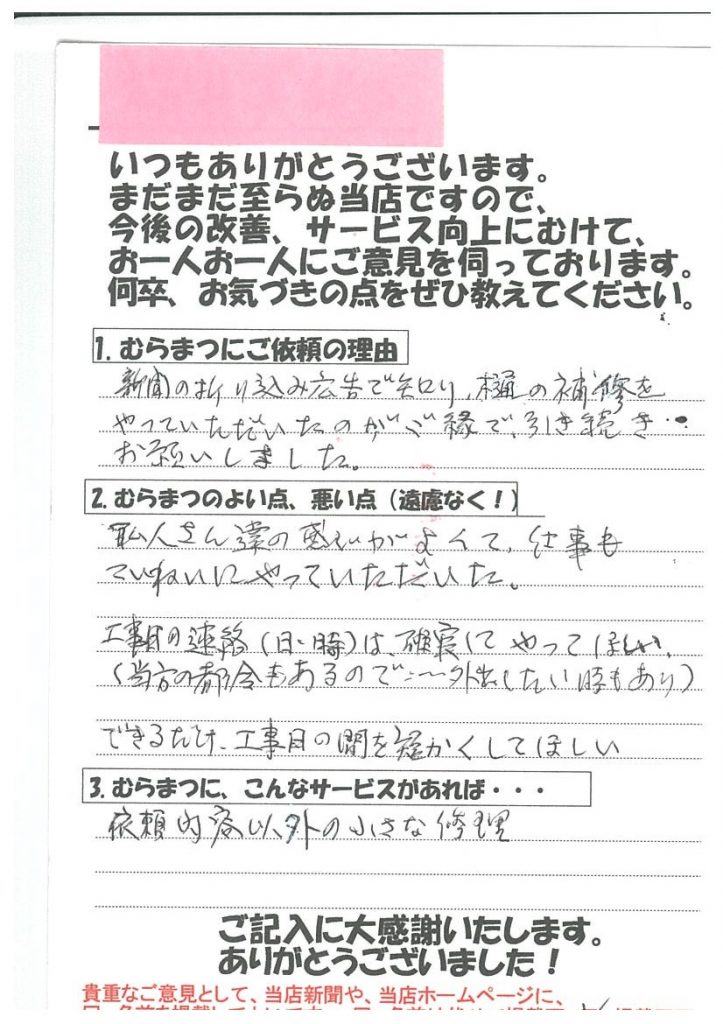 いつもありがとうございます。
まだまだ至らぬ当店ですので、
今後の改善、サービス向上にむけて、
お一人お一人にご意見を伺っております。
何卒、お気づきの点をぜひ教えてください。
1. むらまつにご依頼の理由
新聞の折り込み広告で知り、樋の補修を
やっていただいたのがご縁で、引き続き・・
お願いしました。
2. むらまつのよい点、悪い点（遠慮なく！）
職人さん達の感じがよくて、仕事も
ていねいにやっていただいた。
工事日の連絡（日・時）は、確実にやってほしい、
（当方の都合もあるので…外出したい時もあり）
できるだけ、工事日の間を短かくしてほしい
3. むらまつに、こんなサービスがあれば・・・
依頼内容以外の小さな修理
ご記入に大感謝いたします。
ありがとうございました！
貴重なご意見として、当店新聞や、当店ホームページに、